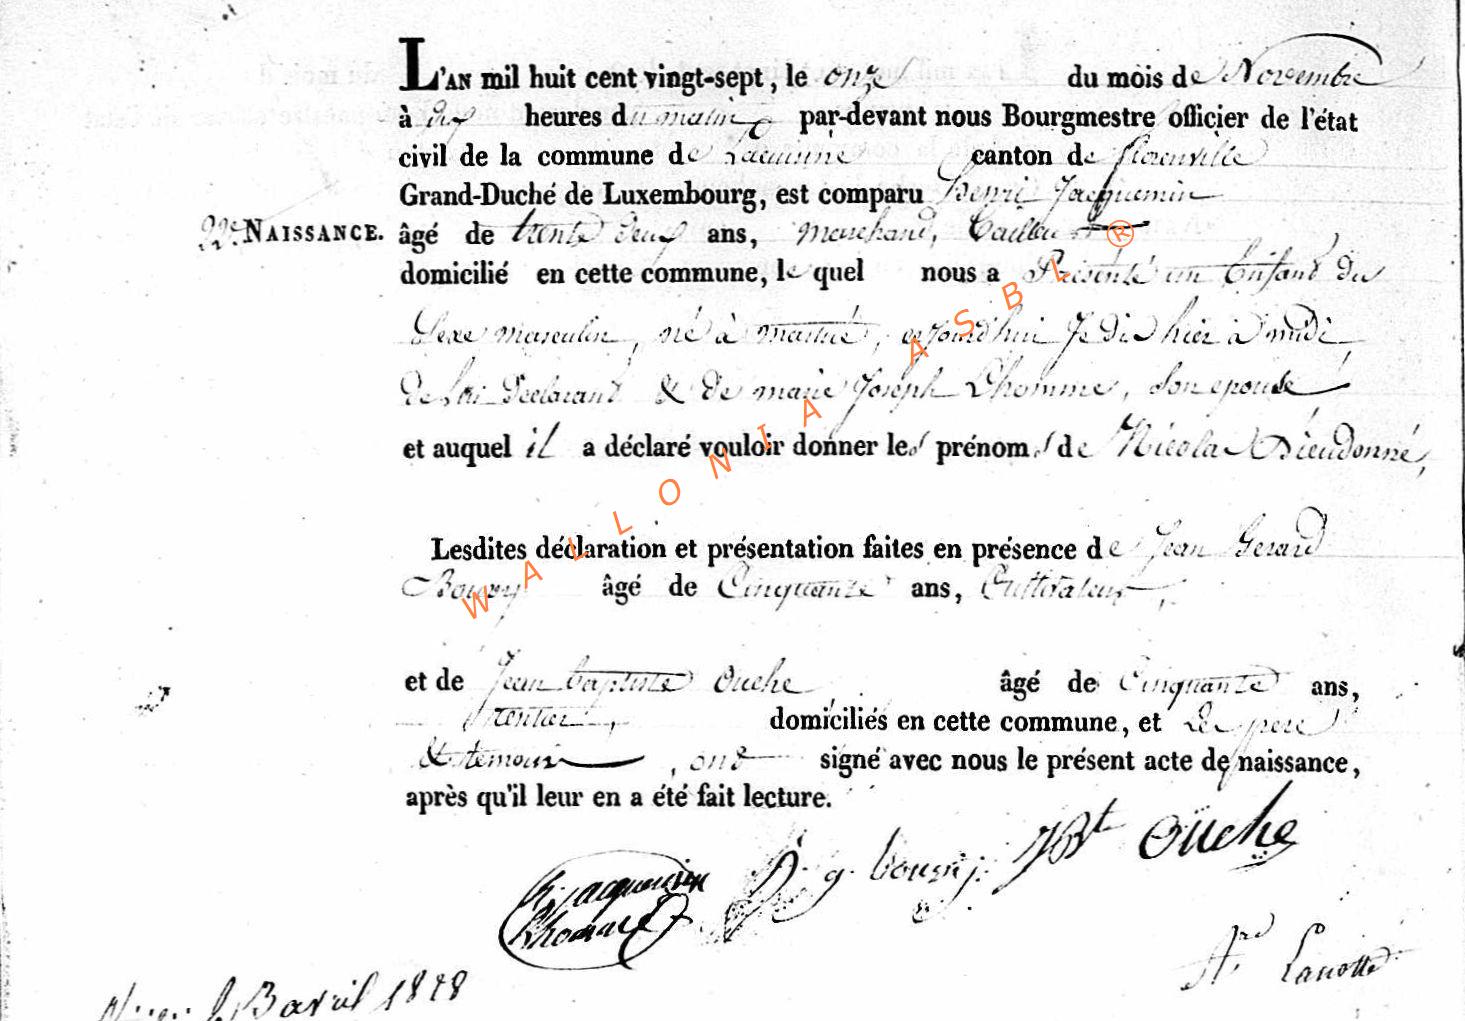 L'AN mil huit cent vingt-sept, le onze du mois de Novembre
à dix heures du matin par-devant nous Bourgmestre officier de l'état
civil de la commune de Lacuisine canton de florenville
Grand-Duché de Luxembourg, est comparu henri Jacquemin
22e. NAISSANCE. âgé de trente deux ans, marchand, Tailleur
domicilié en cette commune, le quel nous a Présenté un Enfant du
Sexe masculin, né à martué, aujourd'hui Je dis hier à midi
de lui Déclarant & de marie Joseph Lhomme, Son epouse
et auquel il a déclaré vouloir donner les prénoms de Nicolas Dieudonné,
Lesdites déclaration et présentation faites en présence de Jean Gerard
Bouvy âgé de Cinquante ans, Cultivateur,
et de Jean baptiste ouche âgé de Cinquante ans,
rentier, domiciliés en cette commune, et Les pere
& temoins, ont signé avec nous le présent acte de naissance,
après qu'il leur en a été fait lecture.
h. jacquemin
Lhomme
g. bouvy
JBt Ouche
Lanotte
3 avril 1828
WALLONIA ASBL ®